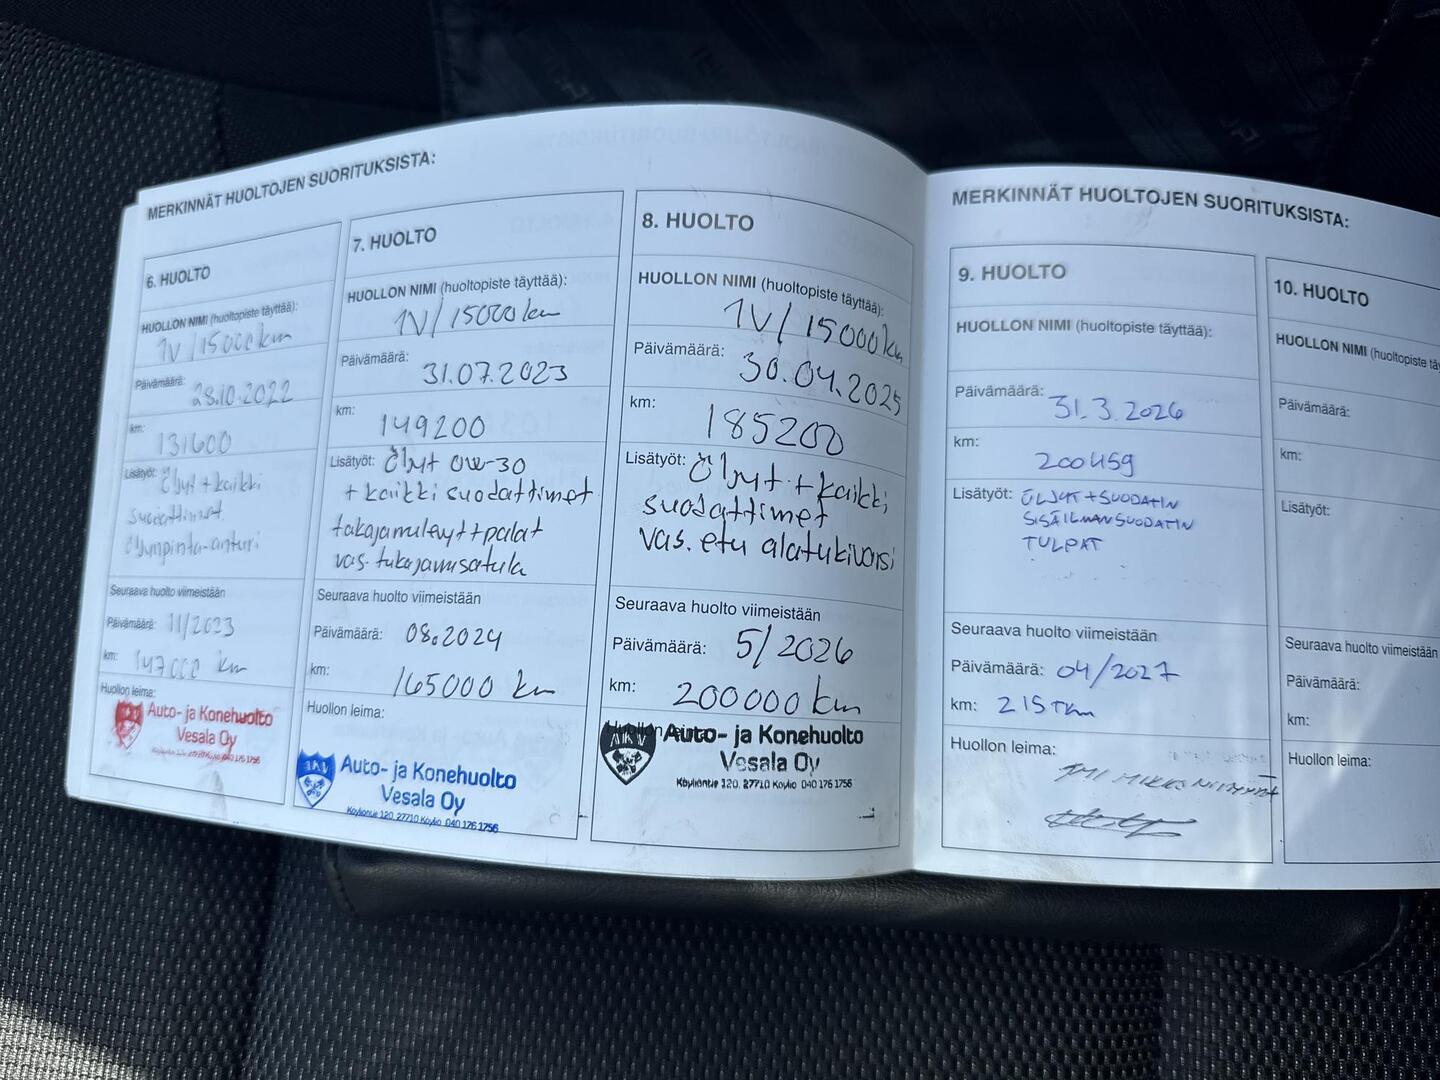 MERKINNÄT HUOLTOJEN SUORITUKSISTA:
6. HUOLTO
HUOLLON NIMI (huoltopiste täyttää):
1V/15000km
Päivämäärä: 28.10.2022
km:
131600
Lisätyöt: Öljyt + kaikki
suodattimet
öljynpinta-anturi
Seuraava huolto viimeistään
Päivämäärä: 11/2023
km: 147000 km
Huollon leima:
Auto- ja Konehuolto
Vesala Oy
7. HUOLTO
HUOLLON NIMI (huoltopiste täyttää):
1V/15000km
Päivämäärä:
31.07.2023
km:
149200
Lisätyöt: Öljyt 0W-30
+ kaikki suodattimet
takajarrulevyt+palat
vas. takajarrusatula
Seuraava huolto viimeistään
Päivämäärä: 08.2024
km:
165000 km
Huollon leima:
AKV
Auto- ja Konehuolto
Vesala Oy
Köyliöntie 120, 27710 Köyliö 040 176 1756
8. HUOLTO
HUOLLON NIMI (huoltopiste täyttää):
1V/15000km
Päivämäärä:
30.04.2025
km:
185200
Lisätyöt: Öljyt + kaikki
suodattimet
vas. etu alatukivarsi
Seuraava huolto viimeistään
Päivämäärä: 5/2026
km: 200000 km
Huollon leima:
AKV
Auto- ja Konehuolto
Vesala Oy
Köyliöntie 120, 27710 Köyliö 040 176 1756
MERKINNÄT HUOLTOJEN SUORITUKSISTA:
9. HUOLTO
HUOLLON NIMI (huoltopiste täyttää):
Päivämäärä: 31.3.2026
km:
200459
Lisätyöt: ÖLJYT + SUODATIN
SISÄILMANSUODATIN
TULPAT
Seuraava huolto viimeistään
Päivämäärä: 04/2027
km: 215Tkm
Huollon leima:
TMI MIKKO
10. HUOLTO
HUOLLON NIMI (huoltopiste tä
Päivämäärä:
km:
Lisätyöt:
Seuraava huolto viimeistään
Päivämäärä:
km:
Huollon leima: